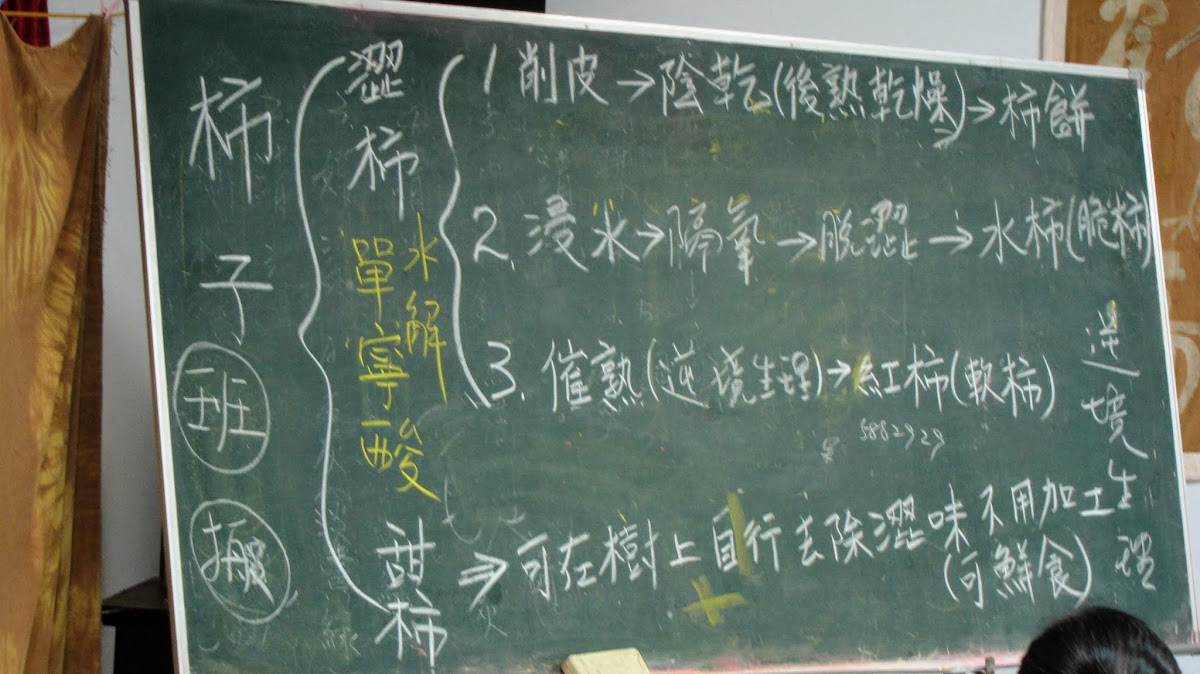 柿子
班
澀柿
單寧酸
水解
1 削皮→陰乾(後熟乾燥)→柿餅
2. 浸水→隔氧→脫澀→水柿(脆柿)
3. 催熟(逆境生理)→紅柿(軟柿)
5882929
逆境生理
甜柿⇒可在樹上自行去除澀味不用加工
(可鮮食)